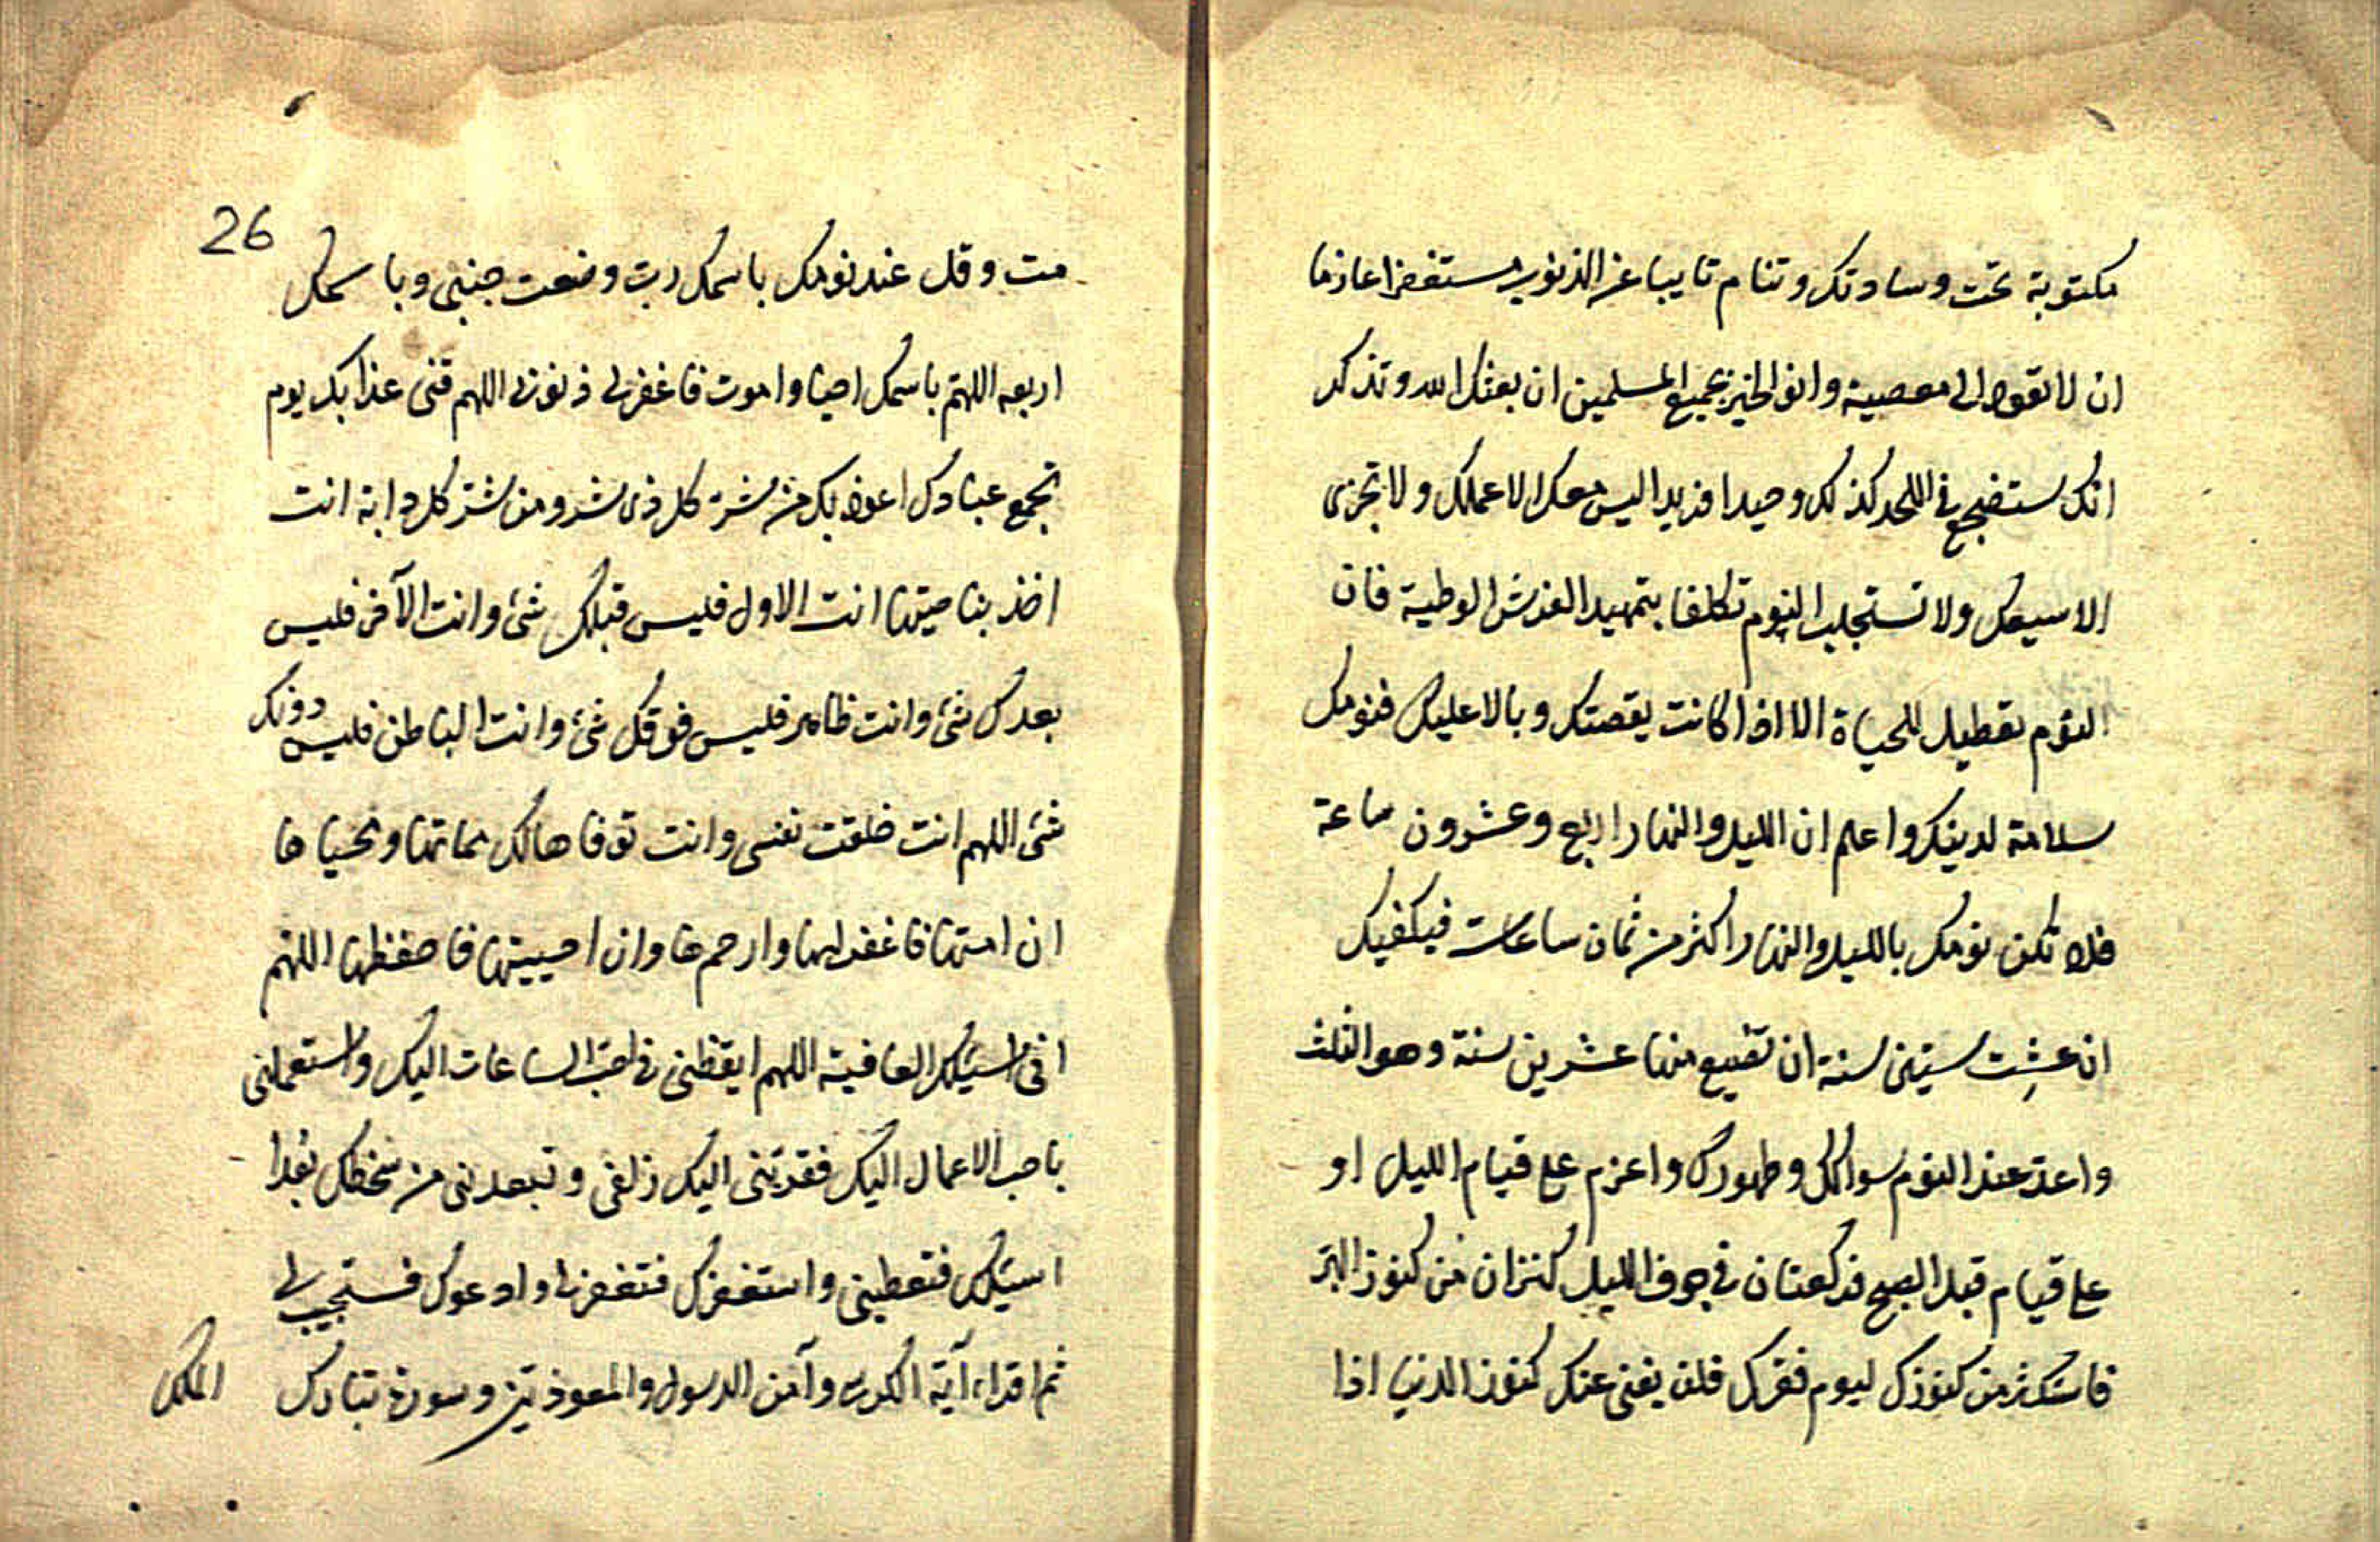 مكتوبة تحت وسادتك وتنام تايبا عن الذنوب مستغفرا عازما
ان لا تعود الى معصية وانو الخير بجميع المسلمين ان بعثك الله وتذكر
انك ستضجع في اللحد كذلك وحيدا فريدا ليس معك الا عملك ولا تجزى
الا سيعك ولا تستجلب النوم تكلفا بتمهيد الفرش الوطية فان
النوم تعطيل للحياة الا اذا كانت يقصتك وبالا عليك فنومك
سلامة لدينك واعلم ان الليل والنهار اربع وعشرون ساعة
فلا تكن نومك بالليل والنهار اكثر من ثمان ساعات فيكفيك
ان عشت ستين سنة ان تضيع منها عشرين سنة وهو الثلث
واعد عند النوم سواكك وطهورك واعزم على قيام الليل او
على قيام قبل الصبح فركعتان في جوف الليل كنزان من كنوز البر
فاستكثر من كنوزك ليوم فقرك فلن يغنى عنك كنوز الدنيا اذا
26
مت وقل عند نومك باسمك رب وضعت جنبى وباسمك
ارفعه اللهم باسمك احيا واموت فاغفر لى ذنوبى اللهم قنى عذابك يوم
تجمع عبادك اعوذ بك من شر كل ذى شر ومن شر كل دابة انت
اخذ بناصيتها انت الاول فليس قبلك شئ وانت الآخر فليس
بعدك شئ وانت ظاهر فليس فوقك شئ وانت الباطن فليس دونك
شئ اللهم انت خلقت نفسى وانت توفاها لك مماتها ومحياها
ان امتها فاغفر لها وارحمها وان احييتها فاحفظها اللهم
انى اسئلك العافية اللهم ايقظنى في احب الساعات اليك واستعملنى
باحب الاعمال اليك فقربنى اليك زلفى وتبعدنى من سخطك بعدا
اسئلك فتعطينى واستغفرك فتغفر لى وادعوك فستجيب لى
ثم اقراء آية الكرسى وآمن الرسول والمعوذتين وسورة تبارك
الملك